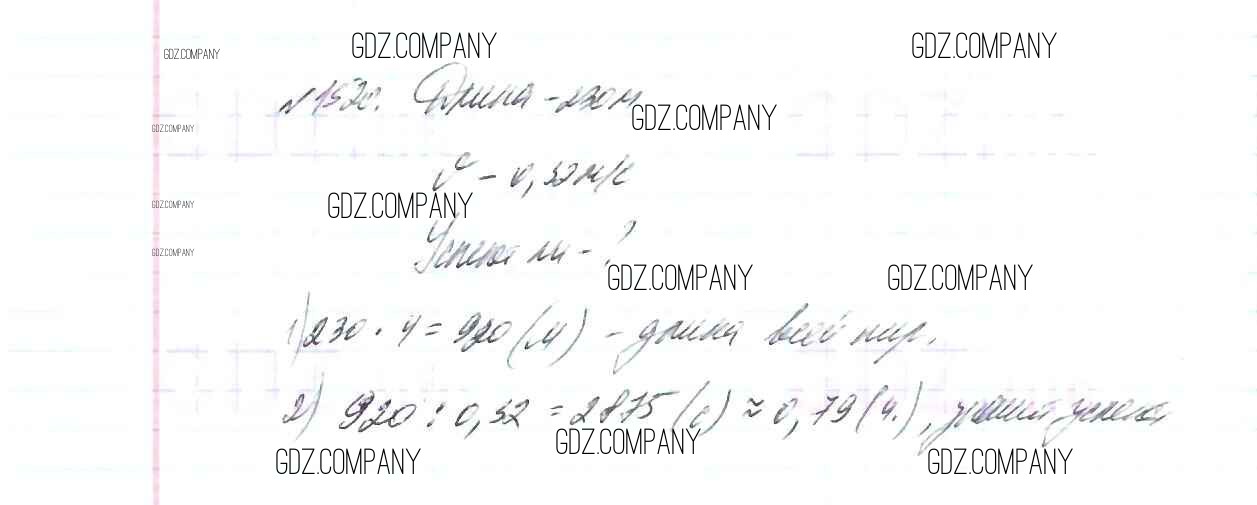 GDZ.COMPANY GDZ.COMPANY GDZ.COMPANY
№1520. Длина - 230 м
GDZ.COMPANY
GDZ.COMPANY
V - 0,32 м/с
GDZ.COMPANY GDZ.COMPANY
Успеют ли - ?
GDZ.COMPANY
GDZ.COMPANY GDZ.COMPANY
1) 230 · 4 = 920 (м) - длина всей пир.
2) 920 : 0,32 = 2875 (с) ≈ 0,79 (ч.), значит успеют
GDZ.COMPANY GDZ.COMPANY GDZ.COMPANY